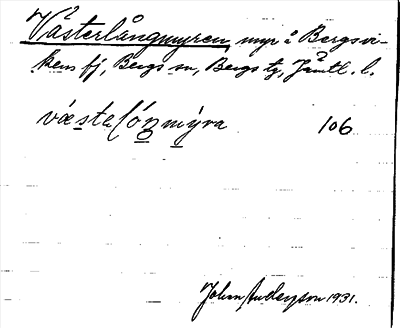 Västerlångmyren, myr å Bergsvi-
kens fj, Bergs sn, Bergs tg, Jämtl. l.
væstelóŋmýra 106
John Anderson 1931.